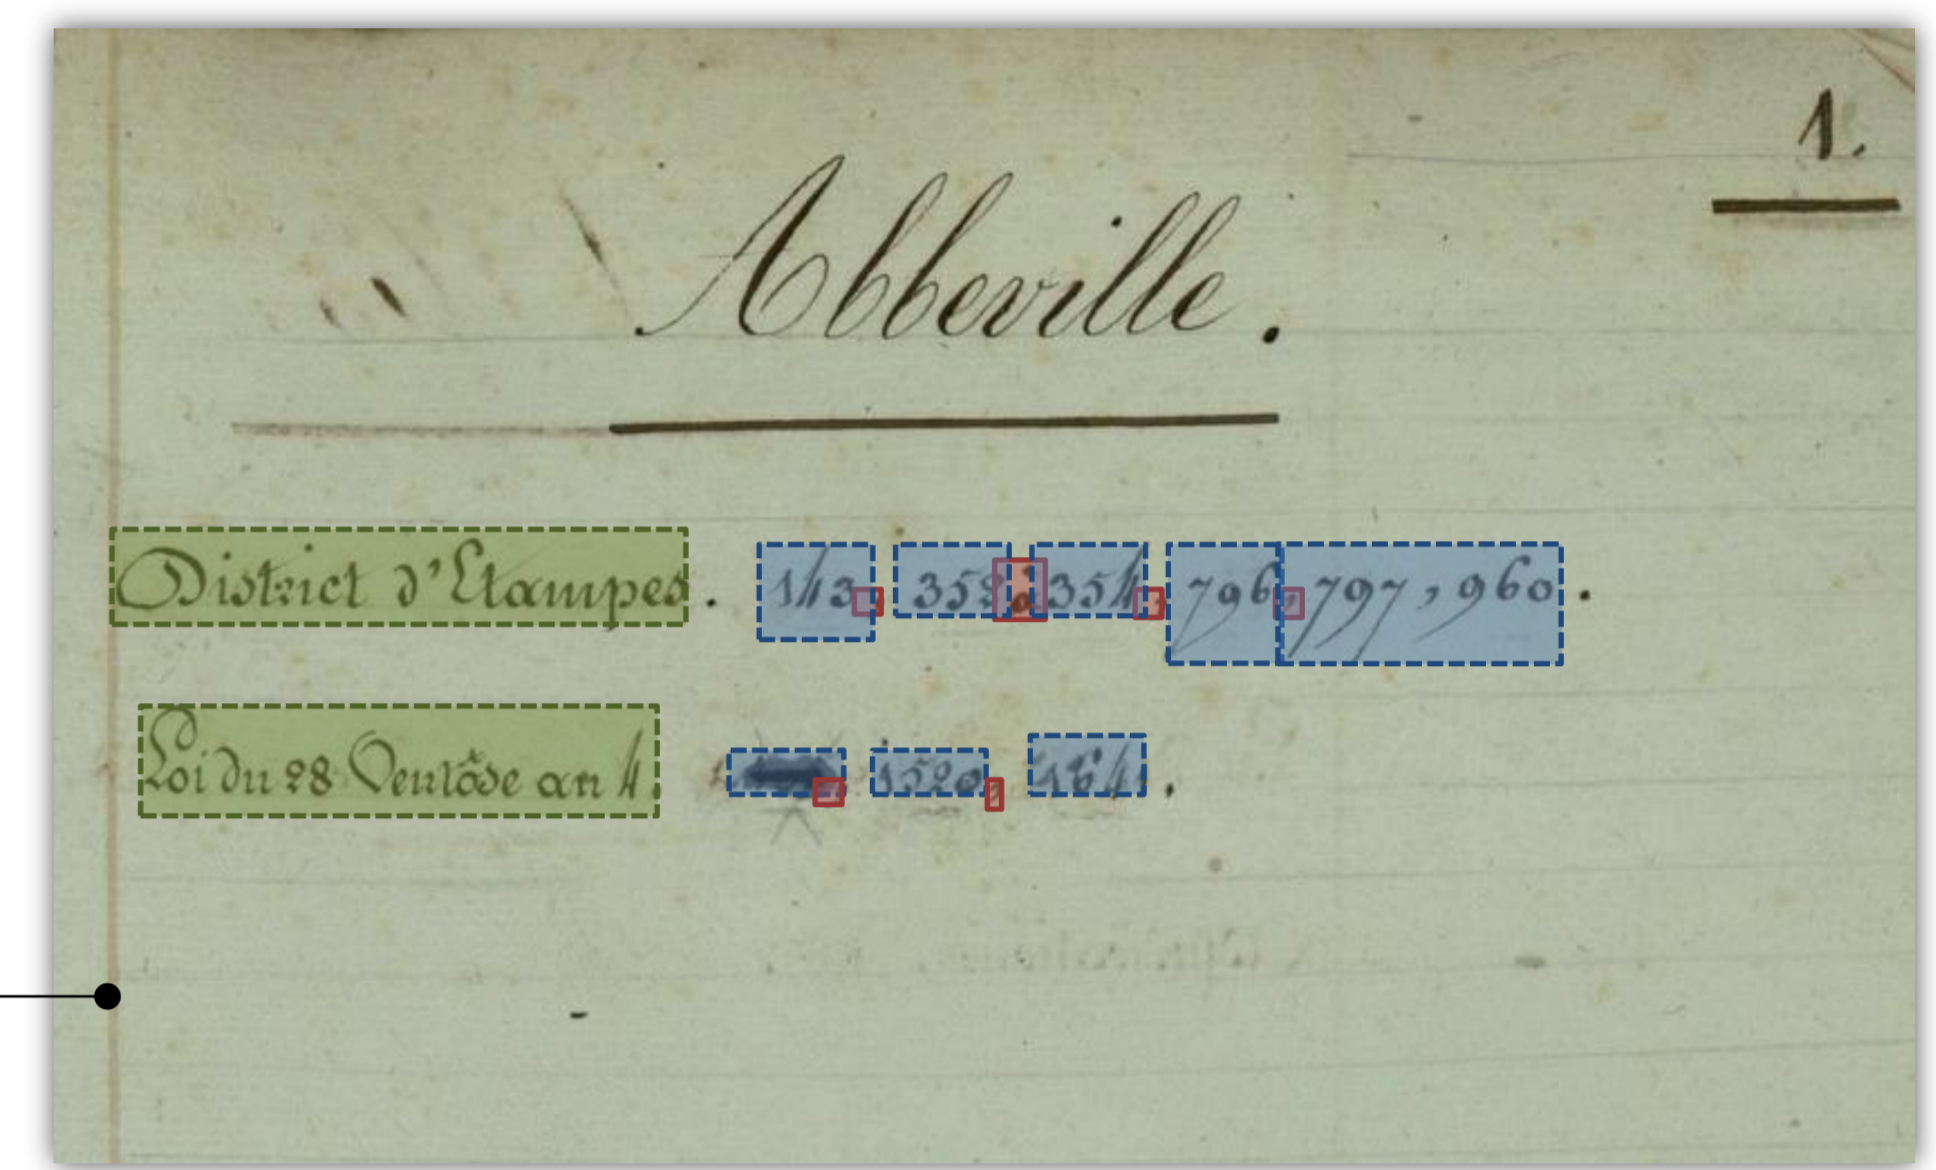 1.
Abbeville.
District d'Etampes. 143, 352 à 354, 796, 797, 960.
Loi du 28 Ventôse an 4. 1520, 164.